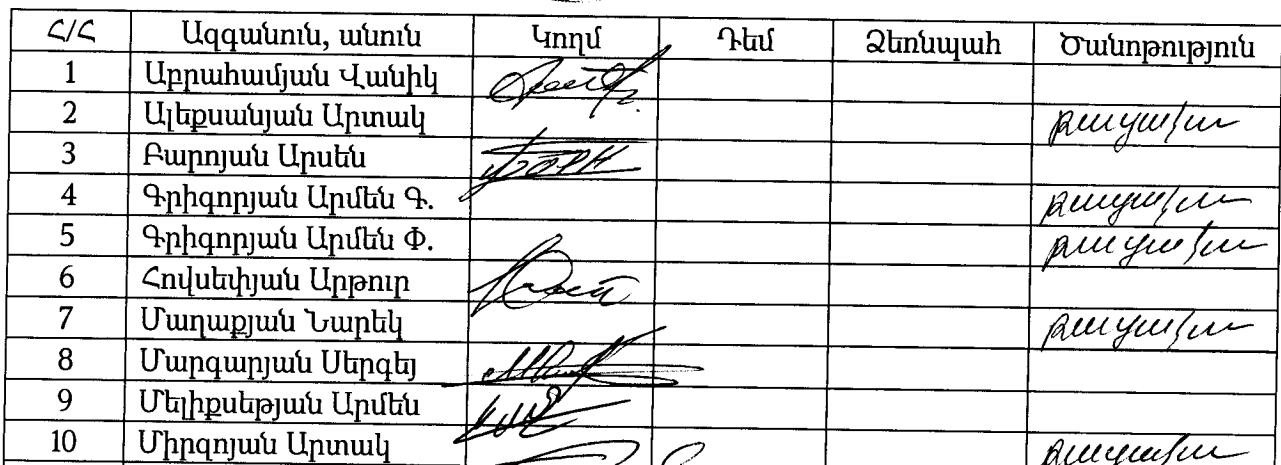 Հ/Հ Ազգանուն, անուն Կողմ Դեմ Ձեռնպահ Ծանոթություն
1 Աբրահամյան Վանիկ
2 Ալեքսանյան Արտակ բացակա
3 Բարոյան Արսեն
4 Գրիգորյան Արմեն Գ. բացակա
5 Գրիգորյան Արմեն Փ. բացակա
6 Հովսեփյան Արթուր
7 Մաղաքյան Նարեկ բացակա
8 Մարգարյան Սերգեյ
9 Մելիքսեթյան Արմեն
10 Միրզոյան Արտակ բացակա